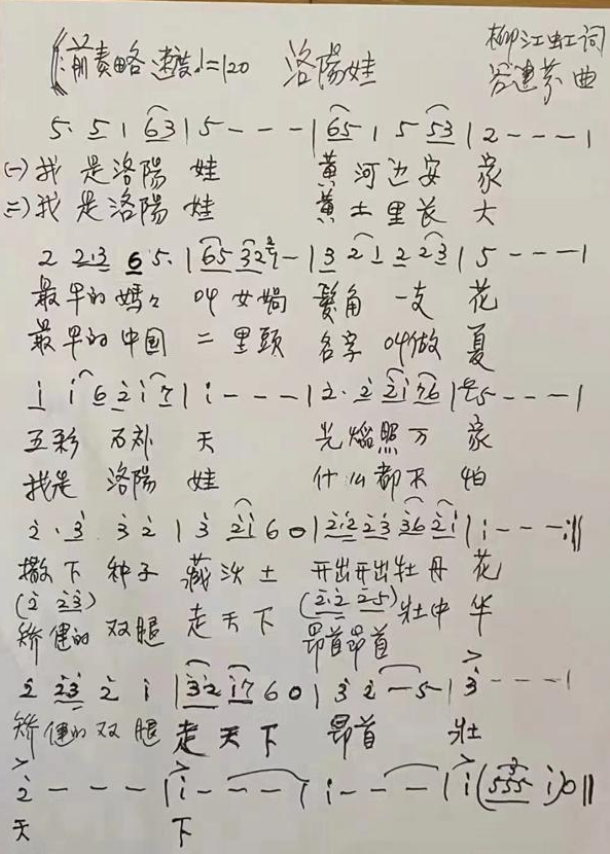 (前奏略 速度♩=120 洛陽娃 柳江虹词
谷建芬 曲
5· 5 1 63 | 5 - - - | 65 1 5 53 | 2 - - - |
(一) 我 是 洛陽 娃 黄 河 边 安 家
(二) 我 是 洛陽 娃 黄 土 里 长 大
2 2·3 6 5· | 65 32 - | 3 2 1 2 23 | 5 - - - |
最早的 媽々 叫 女媧 鬓角 一支 花
最早的 中国 二里頭 名字 叫做 夏
i i 6 2 i 7 | i - - - | 2· 2 2i 76 | 5 - - - |
五彩 石补 天 光焰照万 家
我是 洛陽 娃 什么都不 怕
2 · 3 3 2 | 3 2i 6 0 | 2·2 23 36 2i | i - - - :||
撒下 种子 藏沃土 开出开出牡丹 花
(2 23) (2·2 2·5)
矫健的 双腿 走天下 昂首昂首 壮中 华
2 23 2 i | 32 i7 6 0 | 3 2 - 5 - | 3 - - - |
矫健的 双腿 走天下 昂首 壮
2 - - - | i - - - | i - - - | i (555 i) 0 ||
天 下